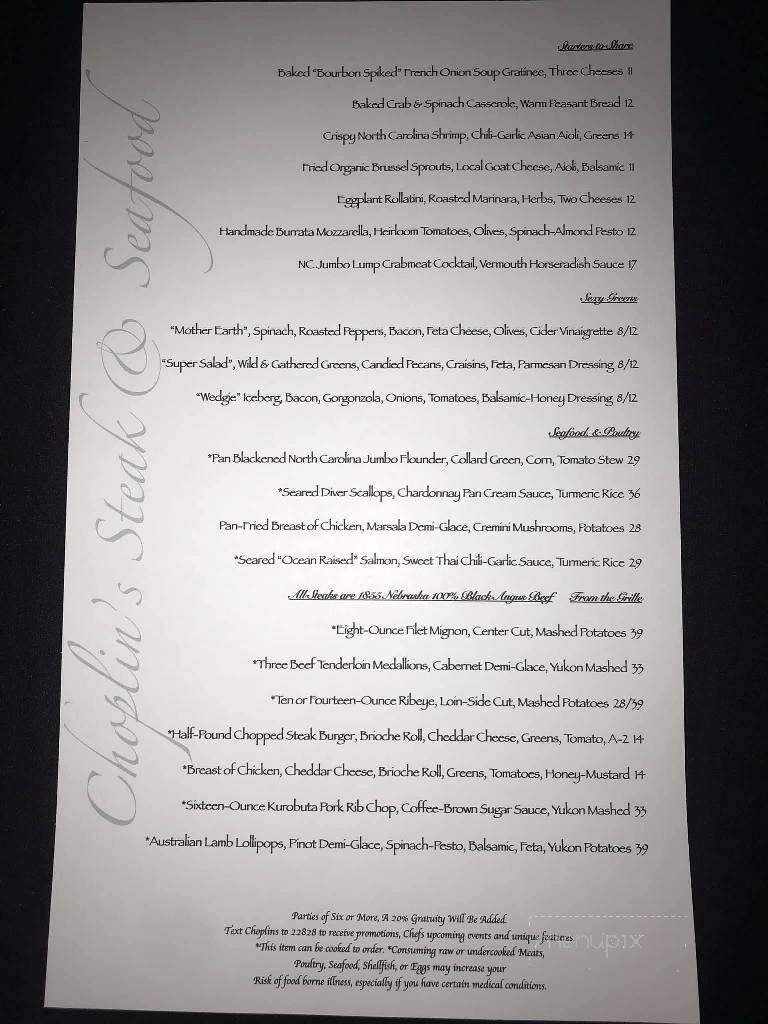 Choplin's Steak & Seafood
Starters to Share
Baked "Bourbon Spiked" French Onion Soup Gratinee, Three Cheeses 11
Baked Crab & Spinach Casserole, Warm Peasant Bread 12
Crispy North Carolina Shrimp, Chili-Garlic Asian Aioli, Greens 14
Fried Organic Brussel Sprouts, Local Goat Cheese, Aioli, Balsamic 11
Eggplant Rollatini, Roasted Marinara, Herbs, Two Cheeses 12
Handmade Burrata Mozzarella, Heirloom Tomatoes, Olives, Spinach-Almond Pesto 12
NC Jumbo Lump Crabmeat Cocktail, Vermouth Horseradish Sauce 17
Sexy Greens
"Mother Earth", Spinach, Roasted Peppers, Bacon, Feta Cheese, Olives, Cider Vinaigrette 8/12
"Super Salad", Wild & Gathered Greens, Candied Pecans, Craisins, Feta, Parmesan Dressing 8/12
"Wedgie" Iceberg, Bacon, Gorgonzola, Onions, Tomatoes, Balsamic-Honey Dressing 8/12
Seafood, & Poultry
*Pan Blackened North Carolina Jumbo Flounder, Collard Green, Corn, Tomato Stew 29
*Seared Diver Scallops, Chardonnay Pan Cream Sauce, Turmeric Rice 36
Pan-Fried Breast of Chicken, Marsala Demi-Glace, Cremini Mushrooms, Potatoes 28
*Seared "Ocean Raised" Salmon, Sweet Thai Chili-Garlic Sauce, Turmeric Rice 29
All Steaks are 1855 Nebraska 100% Black Angus Beef From the Grille
*Eight-Ounce Filet Mignon, Center Cut, Mashed Potatoes 39
*Three Beef Tenderloin Medallions, Cabernet Demi-Glace, Yukon Mashed 33
*Ten or Fourteen-Ounce Ribeye, Loin-Side Cut, Mashed Potatoes 28/39
*Half-Pound Chopped Steak Burger, Brioche Roll, Cheddar Cheese, Greens, Tomato, A-2 14
*Breast of Chicken, Cheddar Cheese, Brioche Roll, Greens, Tomatoes, Honey-Mustard 14
*Sixteen-Ounce Kurobuta Pork Rib Chop, Coffee-Brown Sugar Sauce, Yukon Mashed 33
*Australian Lamb Lollipops, Pinot Demi-Glace, Spinach-Pesto, Balsamic, Feta, Yukon Potatoes 39
Parties of Six or More, A 20% Gratuity Will Be Added.
Text Choplins to 22828 to receive promotions, Chefs upcoming events and unique features
*This item can be cooked to order. *Consuming raw or undercooked Meats,
Poultry, Seafood, Shellfish, or Eggs may increase your
Risk of food borne illness, especially if you have certain medical conditions.
menupix